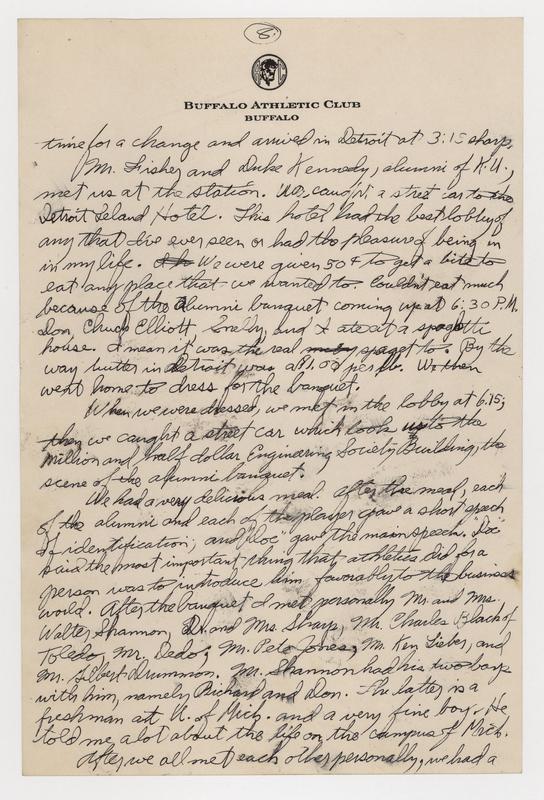 8.
BUFFALO ATHLETIC CLUB
BUFFALO
time for a change and arrived in Detroit at 3:15 sharp.
Mr. Fisher and Duke Kennedy, alumni of K.U.,
met us at the station. We caught a street car to the
Detroit Leland Hotel. This hotel had the best lobby of
any that I've ever seen or had the pleasure of being in
in my life. We were given 50¢ to get a bite to
eat any place that we wanted to. Couldn't eat much
because of the Alumni banquet coming up at 6:30 P.M.
Don, Chuck Elliott, Snelly, and I ate at a spagetti
house. I mean it was the real spaget to. By the
way butter in Detroit was a $1.03 per lb. We then
went home to dress for the banquet.
When we were dressed, we met in the lobby at 6:15;
then we caught a street car which took us to the
Million and half dollar Engineering Society Building, the
scene of the alumni banquet.
We had a very delicious meal. After the meal, each
of the alumni and each of the player gave a short speech
of identification; and "Doc" gave the main speech. "Doc"
said the most important thing that athletics did for a
person was to introduce him favorably to the business
world. After the banquet I met personally Mr. and Mrs.
Walter Shannon, Dr. and Mrs. Sharp, Mr. Charles Black of
Toledo, Mr. Dedo, Mr. Pete Jones, Mr. Ken Lieber, and
Mr. Gilbert Drummon. Mr. Shannon had his two boys
with him, namely Richard and Don. The latter is a
freshman at U. of Mich. and a very fine boy. He
told me a lot about the life on the campus of Mich.
After we all met each other personally, we had a